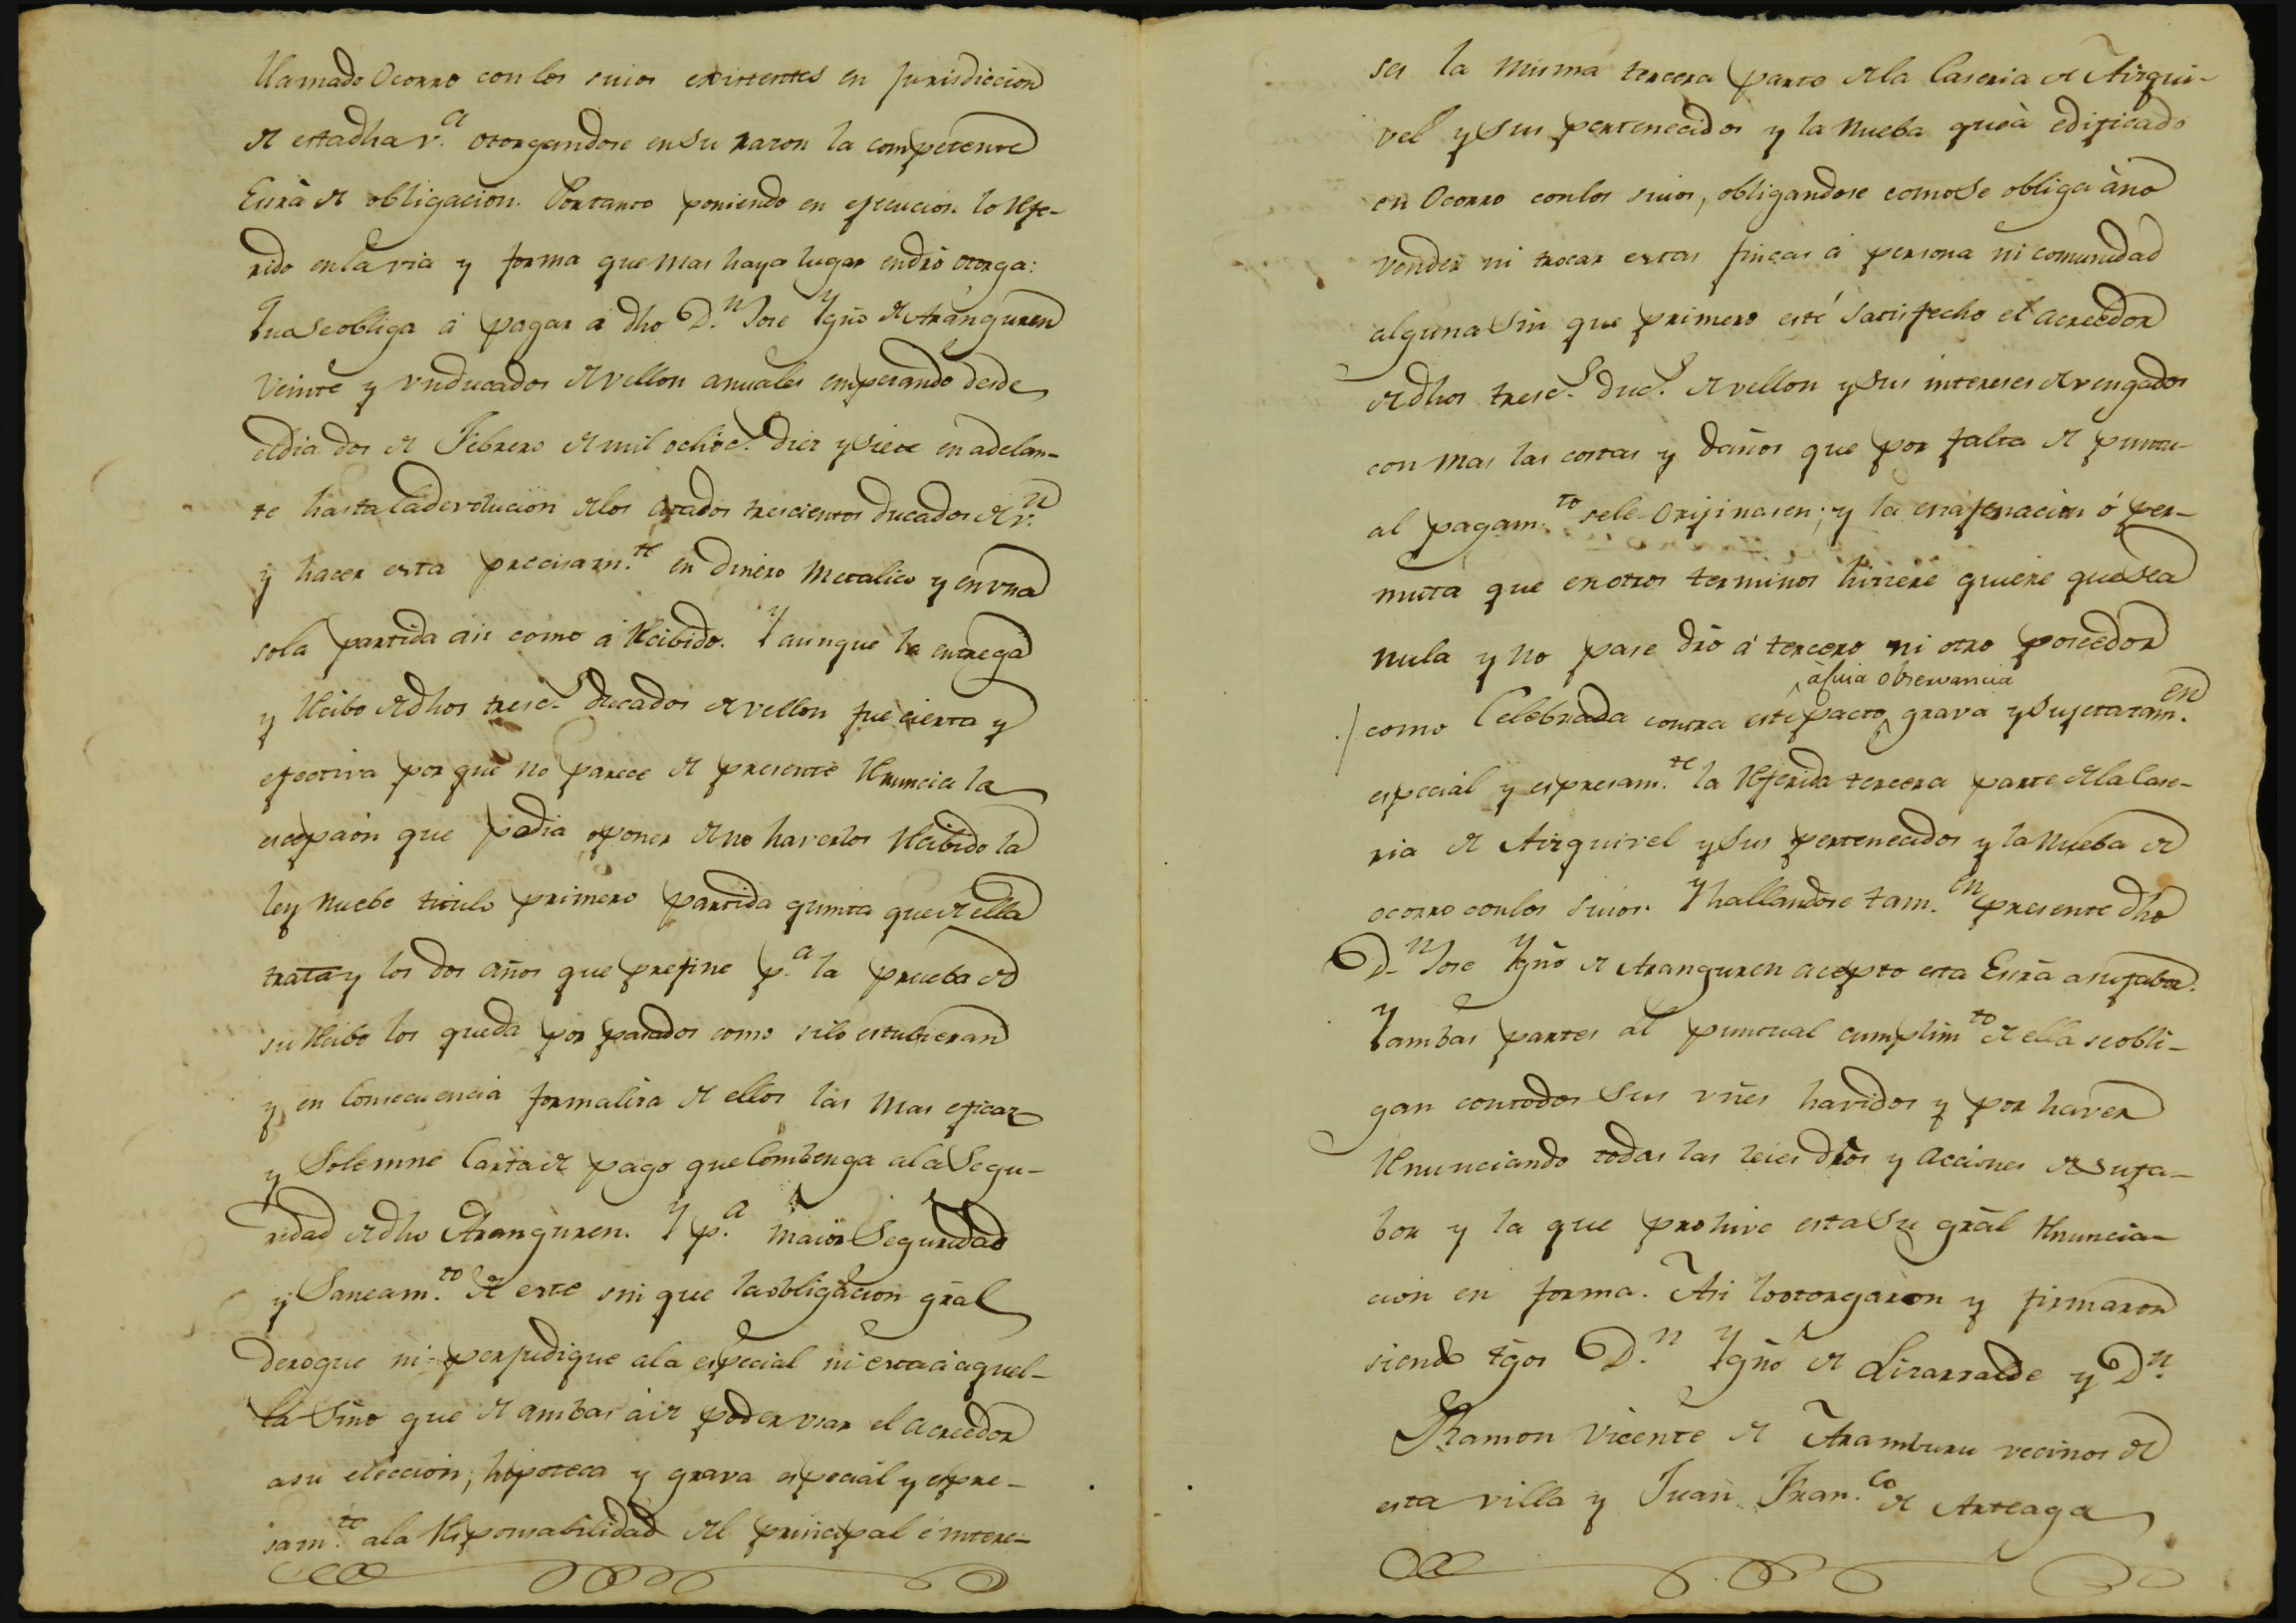 llamado Ocorro con los suios existentes en jurisdiccion
de esta dha v.a otorgandose en su razon la competente
Esrâ de obligacion. Portanto poniendo en ejecucion lo refe-
rido en la via y forma que mas haya lugar en dro otorga:
Que se obliga á pagar á dho D.n Jose Ygño de Aranguren
veinte y un ducados de vellon anuales empezando desde
el dia dos de Febrero de mil ochoc.s diez y siete en adelan-
te hasta la devolucion de los citados trescientos ducados de v.n
y hacer esta precisam.te en dinero metalico y en una
sola partida asi como á recibido. Y aunque la entrega
y recibo de dhos tresc.s ducados de vellon fue cierta y
efectiva por que no parece de presente renuncia la
escepcion que podia oponer de no haverlos recibido la
ley nuebe titulo primero partida quinta que de ella
trata y los dos años que prefine p.a la prueba de
su recibo los queda por pasados como si lo estubieran
y en consecuencia formaliza de ellos las mas eficaz
y solemne carta de pago que combenga a la segu-
ridad de dho Aranguren. Y p.a maior seguridad
y saneam.to de este sin que la obligacion grãl
derogue ni perjudique a la especial ni esta á aquel-
la sino que de ambas á de poder usar el acreedor
a su eleccion, hipoteca y grava especial y espre-
sam.te a la responsabilidad del principal é intere-
ses la misma tercera parte de la Caseria de Aizqui-
vel y sus pertenecidos y la nueba que à edificado
en Ocorro con los suios, obligandose como se obliga à no
vender ni trocar estas fincas á persona ni comunidad
alguna sin que primero esté satisfecho el acreedor
de dhos tresc.s duc.s de vellon y sus intereses devengados
con mas las costas y daños que por falta de puntu-
al pagam.to se le orijinasen; y la enajenacion ó per-
muta que en otros terminos hiciere quiere que sea
nula y no pase dro á tercero ni otro poseedor
à cuia observancia
como celebrada contra este pacto grava y sujeta tam.en
especial y espresam.te la referida tercera parte de la Case-
ria de Aizquivel y sus pertenecidos y la nueba de
ocorro con los suios. Y hallandose tam.en presente dho
D.n Jose Ygño de Aranguren acepto esta Esrâ a su fabor.
Y ambas partes al puntual cumplim.to de ella se obli-
gan con todos sus vñes havidos y por haver
renunciando todas las leies drõs y acciones de su fa-
bor y la que prohive esta su grãl renuncia-
cion en forma. Asi lo otorgaron y firmaron
siendo tg̃os D.n Ygño de Lizarralde y D.n
Ramon Vicente de Aramburu vecinos de
esta villa y Juan Fran.co de Arteaga